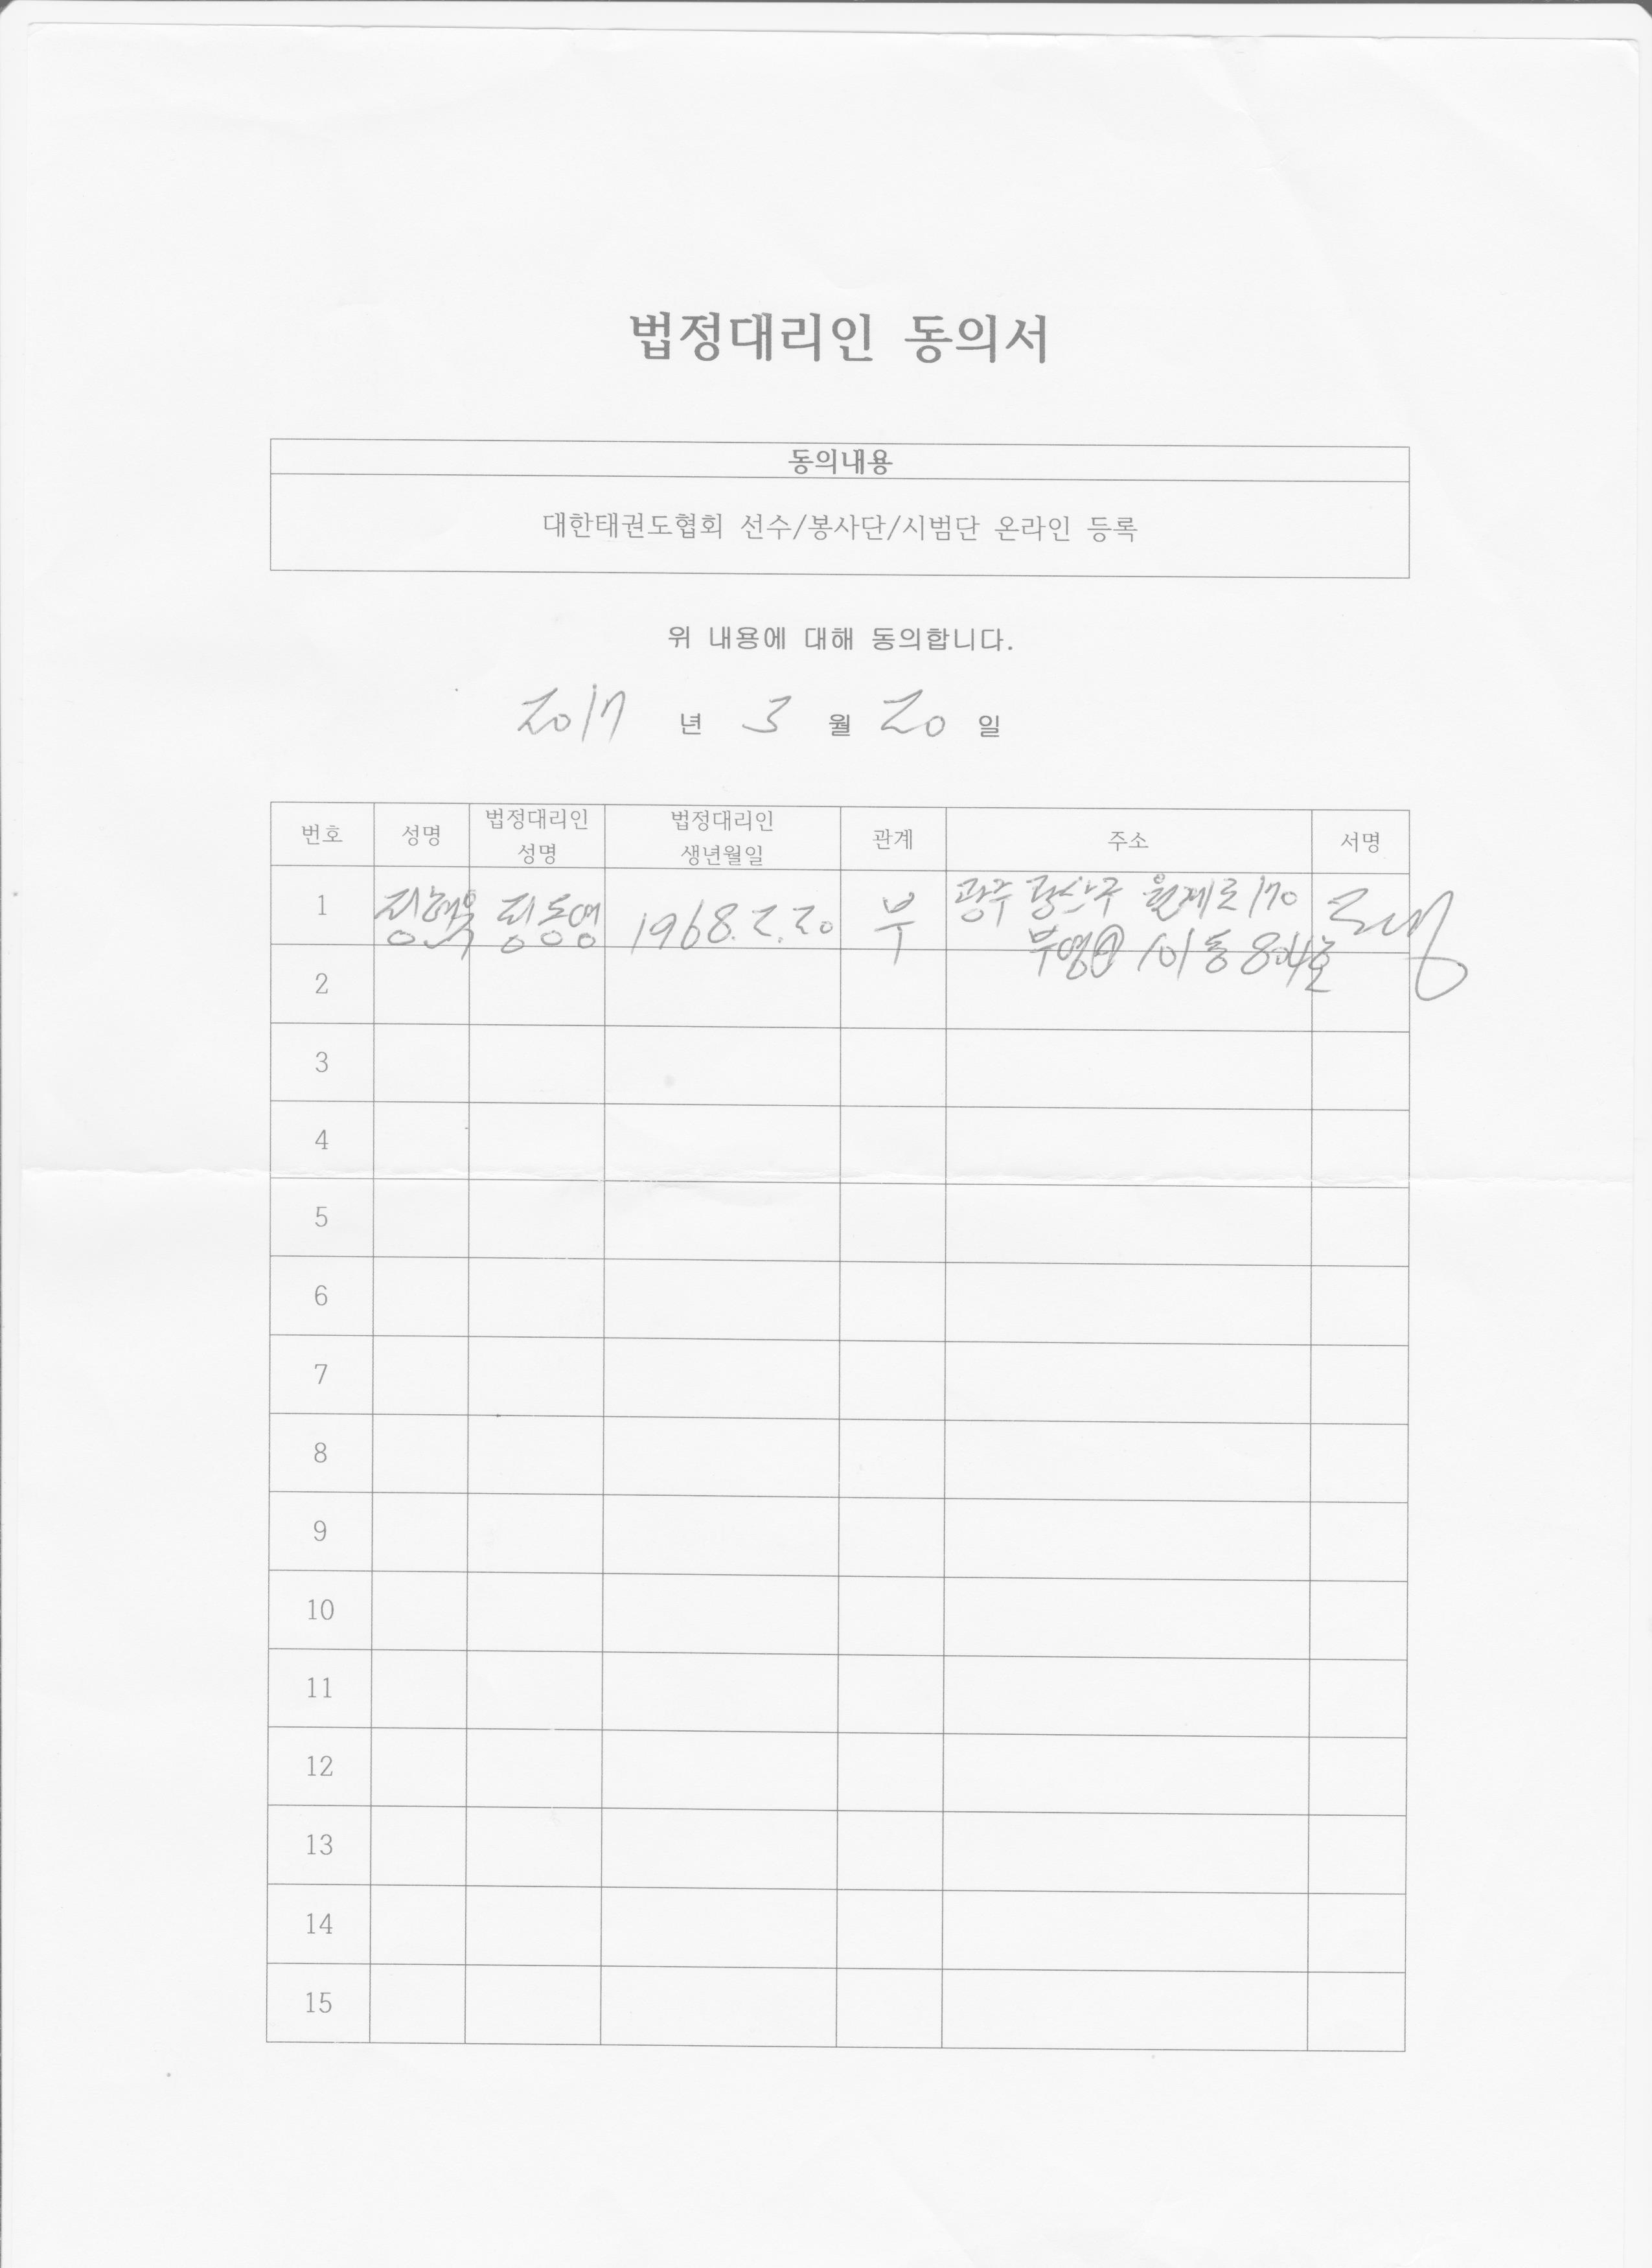 법정대리인 동의서
동의내용
대한태권도협회 선수/봉사단/시범단 온라인 등록
위 내용에 대해 동의합니다.
2017 년 3 월 20 일
번호 성명 법정대리인 성명 법정대리인 생년월일 관계 주소 서명
1 정동영 1968.2.20 부 광주 광산구 월계로 170
부영 101동 804호
2
3
4
5
6
7
8
9
10
11
12
13
14
15